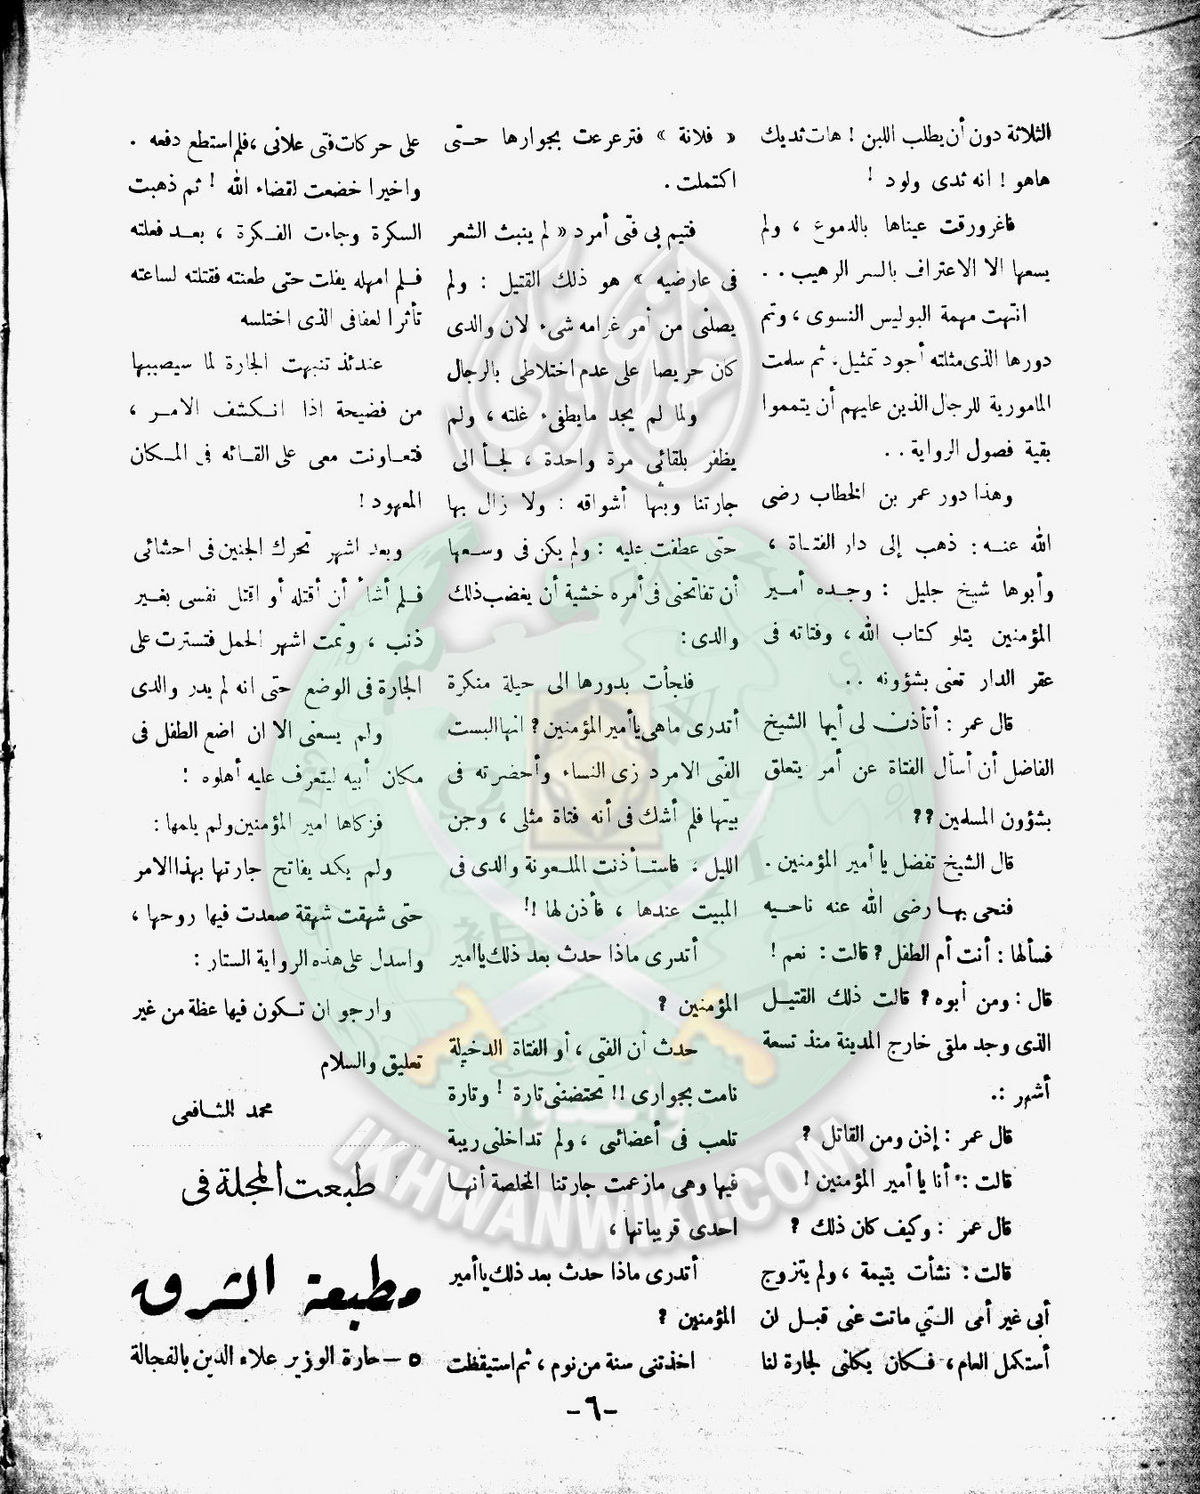 الثلاثة دون أن يطلب اللبن ! هات ثديك
هاهو ! انه ثدى ولود !
فاغرورقت عيناها بالدموع ، ولم
يسعها الا الاعتراف بالسر الرهيب . .
انتهت مهمة البوليس النسوى ، وتم
دورها الذى مثلته أجود تمثيل. ثم سلمت
المامورية للرجال الذين عليهم أن يتمموا
بقية فصول الرواية . .
وهذا دور عمر بن الخطاب رضى
الله عنه : ذهب إلى دار الفتاة ،
وأبوها شيخ جليل : وجده أمير
المؤمنين يتلو كتاب الله ، وفتاته فى
عقر الدار تعنى بشؤونه . .
قال عمر : أتأذن لى أيها الشيخ
الفاضل أن أسأل الفتاة عن أمر يتعلق
بشؤون المسلمين ؟؟
قال الشيخ تفضل يا أمير المؤمنين .
فنحى بها رضى الله عنه ناحيه
فسألها : أنت أم الطفل ؟ قالت : نعم !
قال : ومن أبوه ؟ قالت ذلك القتيل
الذى وجد ملقى خارج المدينة منذ تسعة
أشهر :.
قال عمر : إذن ومن القاتل ؟
قالت : أنا يا أمير المؤمنين !
قال عمر : وكيف كان ذلك ؟
قالت : نشأت يتيمة ، ولم يتزوج
أبى غير أمى التي ماتت عنى قبل لن
أستكمل العام ، فكان يكلنى لجارة لنا
« فلانة » فترعرعت بجوارها حتى
اكتملت .
فتيم بى فتى أمرد « لم ينبث الشعر
فى عارضيه » هو ذلك القتيل : ولم
يصلنى من أمر غرامه شىء لان والدى
كان حريصا على عدم اختلاطى بالرجال
ولما لم يجد مايطفىء غلته ، ولم
يظفر بلقائى مرة واحدة ، لجأ الى
جارتنا وبثها أشواقه : ولا زال بها
حتى عطفت عليه : ولم يكن فى وسعها
أن تفاتحنى فى أمره خشية أن يغضب ذلك
والدى :
فلجأت بدورها الى حيلة منكرة
أتدرى ماهى يا أمير المؤمنين ؟ انها البست
الفتى الامرد زى النساء وأحضرته فى
بيتها فلم أشك فى أنه فتاة مثلى ، وجن
الليل ، فاستأذنت الملعونة والدى فى
المبيت عندها ، فأذن لها !!
أتدرى ماذا حدث بعد ذلك يا امير
المؤمنين ؟
حدث أن الفتى ، أو الفتاة الدخيلة
نامت بجوارى !! تحتضننى تارة ! وتارة
تلعب فى أعضائى ، ولم تداخلنى ريبة
فيها وهى مازعمت جارتنا المخلصة أنها
احدى قريباتها ،
أتدرى ماذا حدث بعد ذلك يا أمير
المؤمنين ؟
اخذتنى سنة من نوم ، ثم استيقظت
على حركات فتى علانى ، فلم استطع دفعه .
واخيرا خضعت لقضاء الله ! ثم ذهبت
السكرة وجاءت الفكرة ، بعد فعلته
فلم امهله يفلت حتى طعنته فقتلته لساعته
تأثرا لعفافى الذى اختلسه
عندئذ تنبهت الجارة لما سيصيبها
من فضيحة اذا انكشف الامر ،
فتعاونت معى على القائه فى المكان
المعهود !
وبعد اشهر تحرك الجنين فى احشائى
فلم أشأ أن أقتله أو اقتل نفسى بغير
ذنب ، وتمت اشهر الحمل فتسترت على
الجارة فى الوضع حتى انه لم يدر والدى
ولم يسعنى الا ان اضع الطفل فى
مكان أبيه ليتعرف عليه أهلوه :
فزكاها امير المؤمنين ولم يلمها :
ولم يكد يفاتح جارتها بهذا الامر
حتى شهقت شهقة صعدت فيها روحها ،
واسدل على هذه الرواية الستار :
وارجو ان تكون فيها عظة من غير
تعليق والسلام
محمد الشافعى
طبعت المجلة فى
مطبعة الشرق
٥ – حارة الوزير علاء الدين بالفجالة
–٦–
IKHWANWIKI.COM